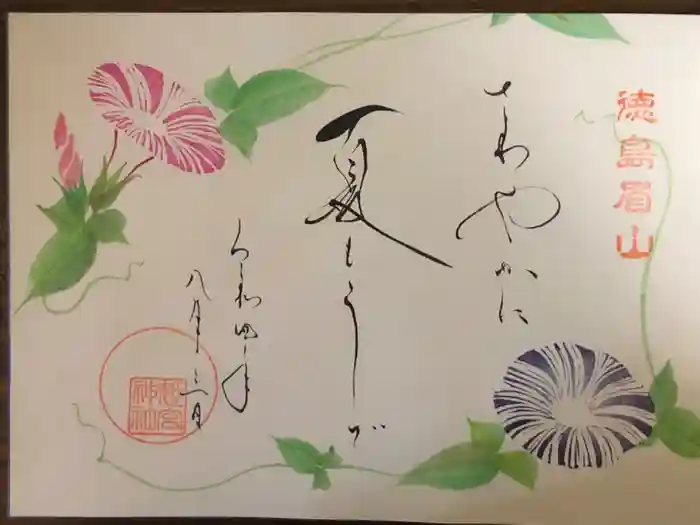 徳島眉山
さわやかに
夏もうじ
令和四年
八月三日
忌宮神社